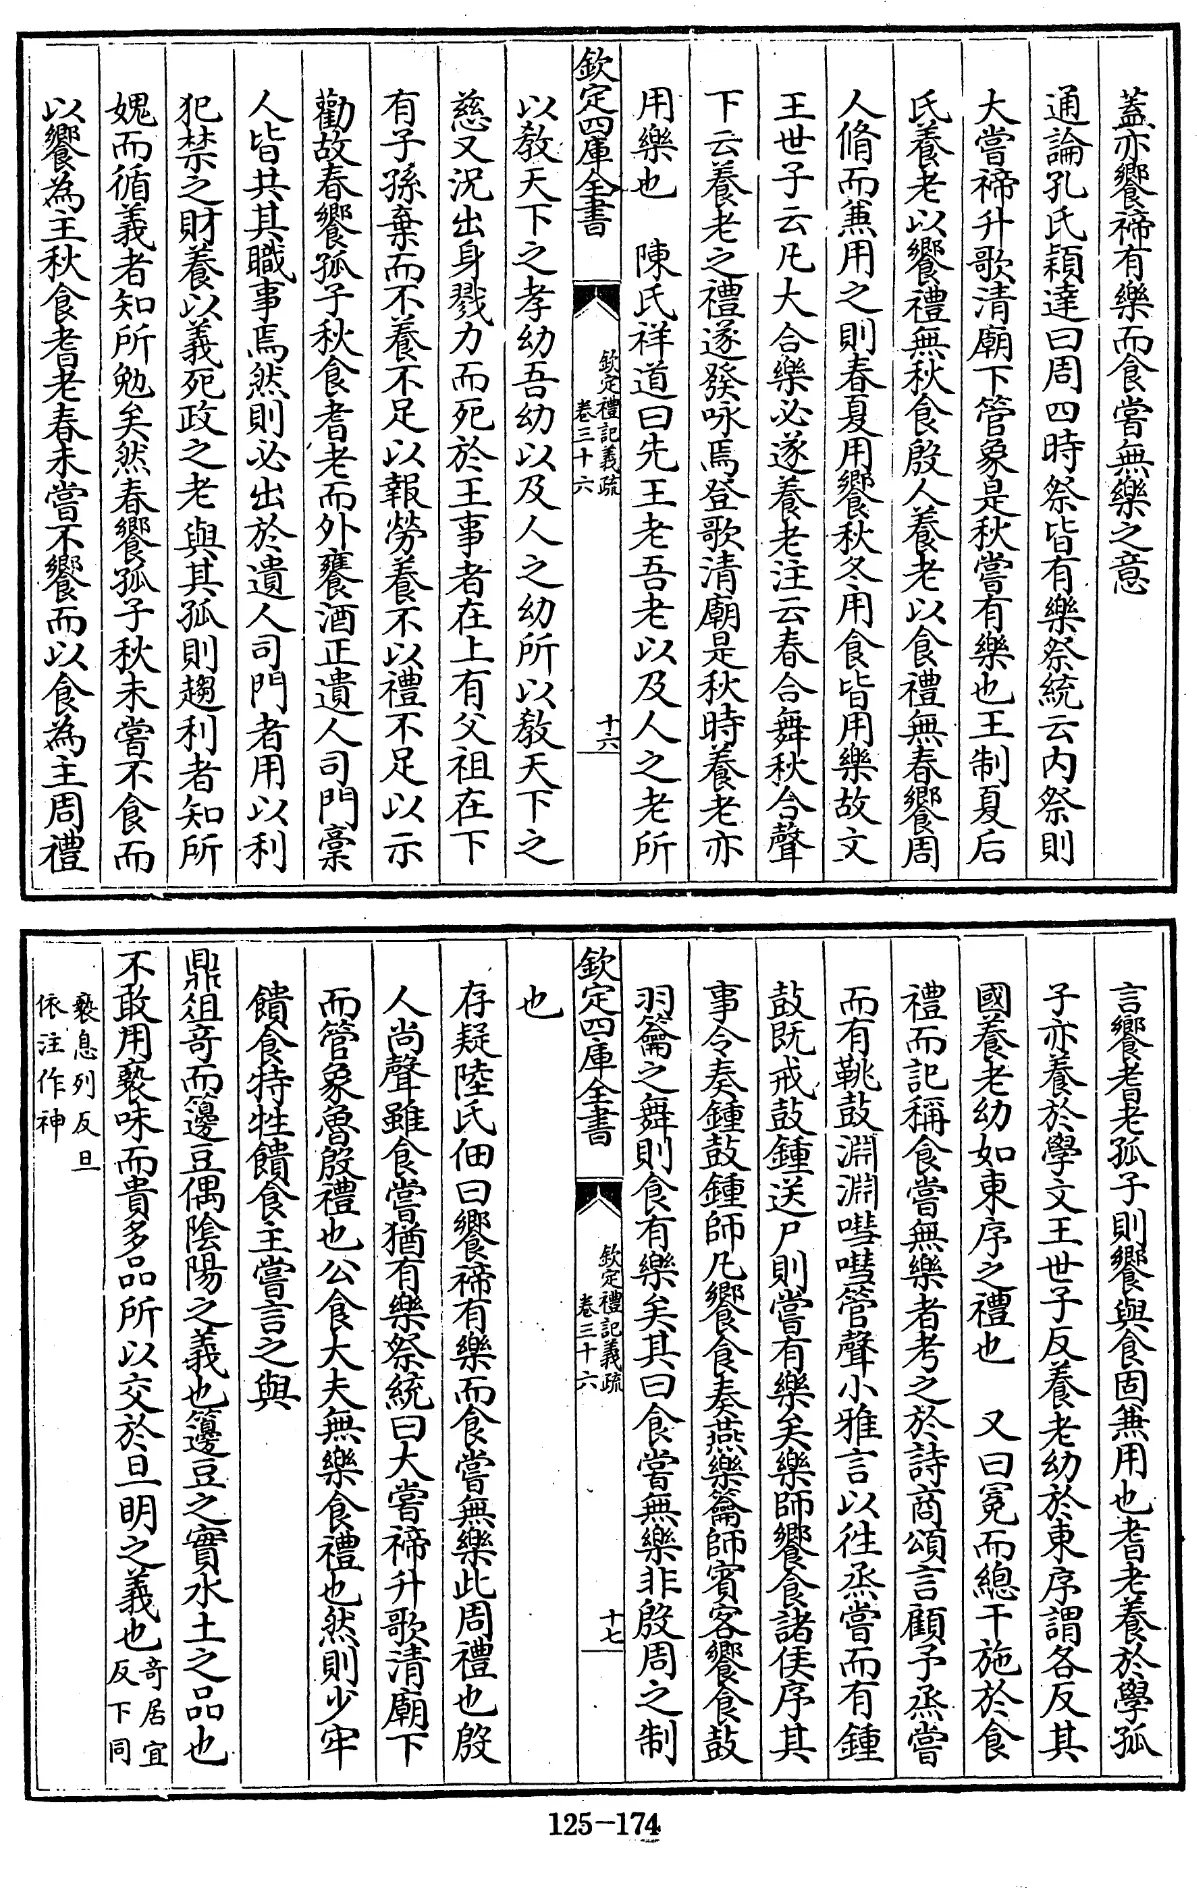 蓋亦饗禘有樂而食嘗無樂之意
通論孔氏穎達曰周四時祭皆有樂祭統云內祭則
大嘗禘升歌清廟下管象是秋嘗有樂也王制夏后
氏養老以饗禮無秋食殷人養老以食禮無春饗周
人脩而兼用之則春夏用饗秋冬用食皆用樂故文
王世子云凡大合樂必遂養老注云春合舞秋合聲
下云養老之禮遂發咏焉登歌清廟是秋時養老亦
用樂也　陳氏祥道曰先王老吾老以及人之老所
欽定四庫全書
欽定禮記義疏
卷三十六
十六
以教天下之孝幼吾幼以及人之幼所以教天下之
慈又況出身戮力而死於王事者在上有父祖在下
有子孫棄而不養不足以報勞養不以禮不足以示
勸故春饗孤子秋食耆老而外饔酒正遺人司門槀
人皆共其職事焉然則必出於遺人司門者用以利
犯禁之財養以義死政之老與其孤則趨利者知所
媿而循義者知所勉矣然春饗孤子秋未嘗不食而
以饗為主秋食耆老春未嘗不饗而以食為主周禮
言饗耆老孤子則饗與食固兼用也耆老養於學孤
子亦養於學文王世子反養老幼於東序謂各反其
國養老幼如東序之禮也　又曰冕而總干施於食
禮而記稱食嘗無樂者考之於詩商頌言顧予烝嘗
而有鞉鼓淵淵嘒嘒管聲小雅言以往烝嘗而有鍾
鼓既戒鼓鍾送尸則嘗有樂矣樂師饗食諸侯序其
事令奏鍾鼓鍾師凡饗食奏燕樂籥師賓客饗食鼓
羽籥之舞則食有樂矣其曰食嘗無樂非殷周之制
欽定四庫全書
欽定禮記義疏
卷三十六
十七
也
存疑陸氏佃曰饗禘有樂而食嘗無樂此周禮也殷
人尚聲雖食嘗猶有樂祭統曰大嘗禘升歌清廟下
而管象魯殷禮也公食大夫無樂食禮也然則少牢
饋食特牲饋食主嘗言之與
鼎俎奇而籩豆偶陰陽之義也籩豆之實水土之品也
不敢用褻味而貴多品所以交於旦明之義也奇居宜
反下同
褻息列反旦
依注作神
125-174